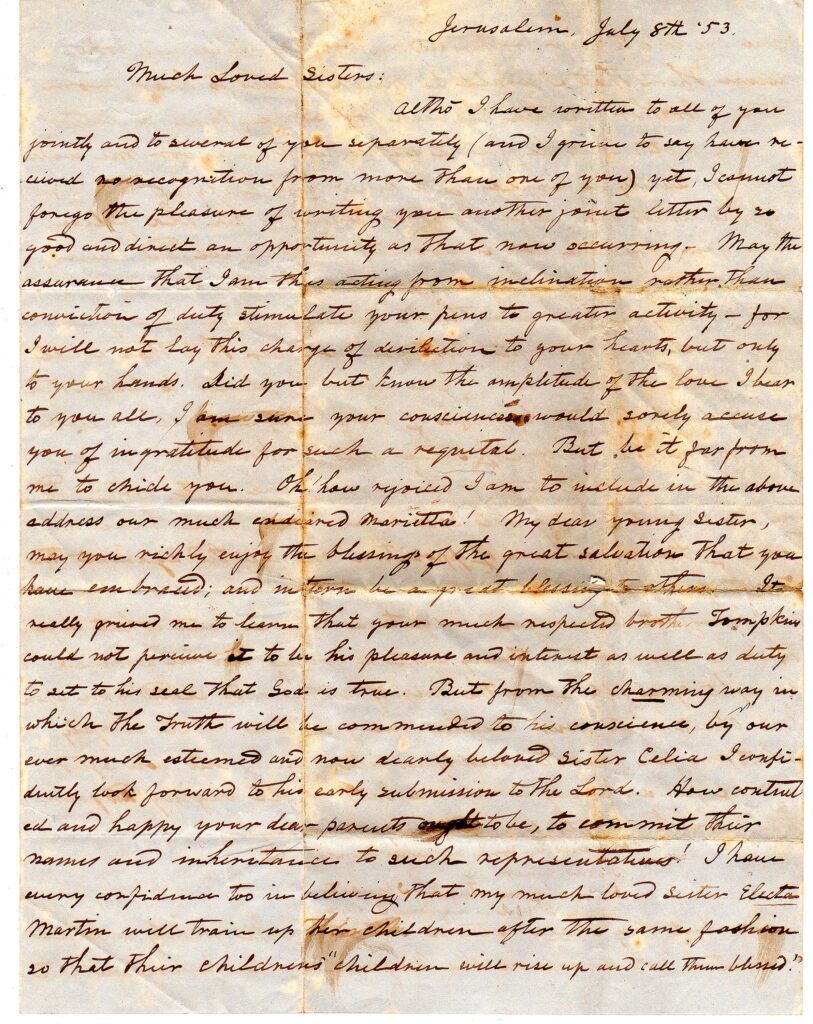 Jerusalem, July 8th '53.
Much Loved Sisters:
Altho I have written to all of you
jointly and to several of you separately (and I grieve to say have re-
ceived no recognition from more than one of you) yet, I cannot
forego the pleasure of writing you another joint letter by so
good and direct an opportunity as that now occurring. May the
assurance that I am thus acting from inclination rather than
conviction of duty stimulate your pens to greater activity – for
I will not lay this charge of deriliction to your hearts, but only
to your hands. Did you but know the amplitude of the love I bear
to you all, I am sure your consciences would sorely accuse
you of ingratitude for such a requital. But be it far from
me to chide you. Oh! how rejoiced I am to include in the above
address our much endeared Marietta! My dear young sister,
may you richly enjoy the blessings of the great salvation that you
have embraced; and in turn be a great blessing to others. It
really grieved me to learn that your much respected broth Tompkins
could not perceive it to be his pleasure and interest as well as duty
to set to his seal that God is true. But from the charming way in
which the Truth will be commended to his conscience, by our
ever much esteemed and now dearly beloved Sister Celia I confi-
dently look forward to his early submission to the Lord. How content
ed and happy your dear parents ought to be, to commit their
names and inheritance to such representatives! I have
every confidence too in believing that my much loved sister Electa
Martin will train up her children after the same fashion
so that their childrens "children will rise up and call them blessed."